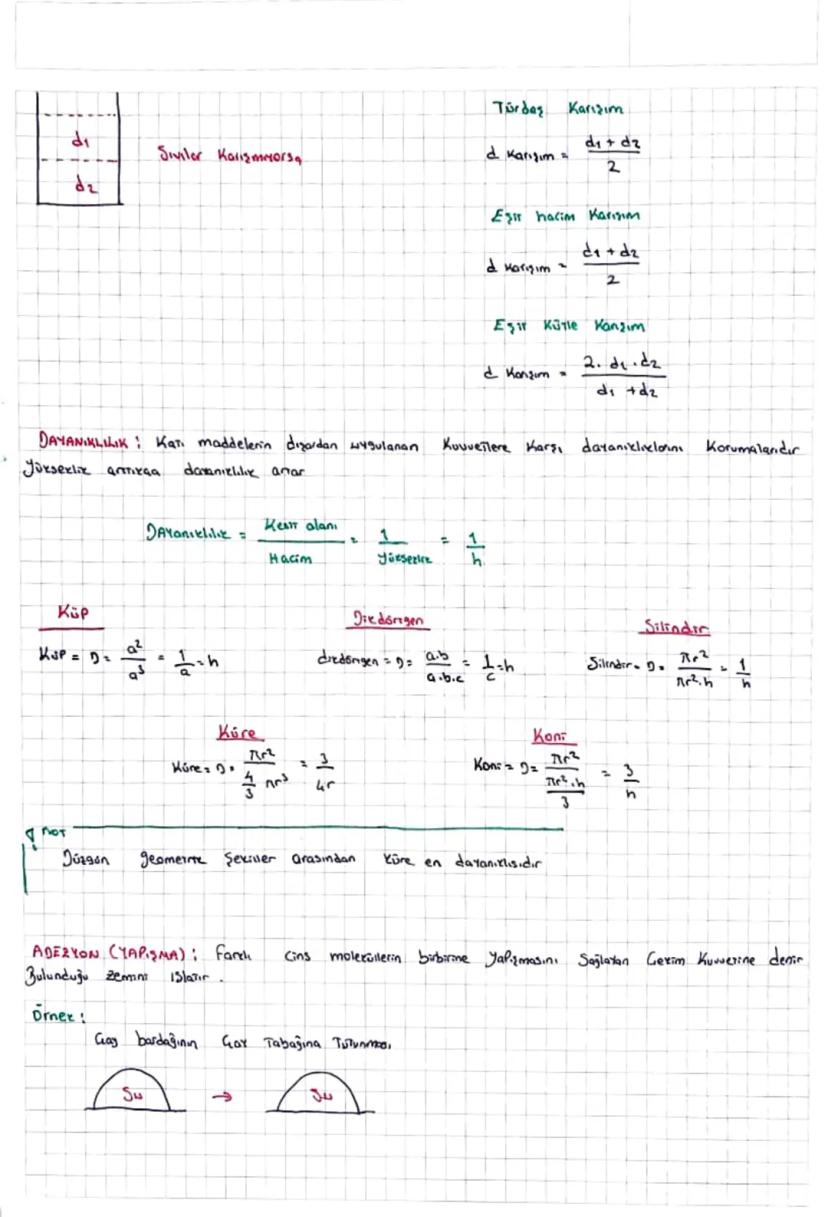 d1
d2
Sıvılar Karışmıyorsa
Türdaş Karışım
d Karışım = d1 + d2 / 2
Eşit hacim Karışım
d Karışım = d1 + d2 / 2
Eşit Kütle Karışım
d Karışım = 2. d1 . d2 / d1 + d2
DAYANIKLILIK : Katı maddelerin dışardan uygulanan Kuvvetlere Karşı dayanıklıklarını Korumalarıdır
Yükseklik arttıkça dayanıklılık artar
DAYanıklılık = Kesit alanı / Hacim = 1 / Yükseklik = 1 / h
Küp
Dikdörtgen
Silindir
Küp = D = a² / a³ = 1 / a = h
dikdörtgen = D = a.b / a.b.c = 1 / c = h
Silindir = D = πr² / πr².h = 1 / h
Küre
Koni
Küre = D = πr² / 4/3 πr³ = 3 / 4r
Koni = D = πr² / πr².h / 3 = 3 / h
not
Düzgün geometrik şekiller arasından küre en dayanıklısıdır
ADEZYON (YAPIŞMA) : Farklı cins moleküllerin birbirine yapışmasını Sağlayan Çekim Kuvvetine denir
Bulunduğu zemini ıslatır .
Örnek :
Çay bardağının Çay Tabağına Tutunması
Su → Su